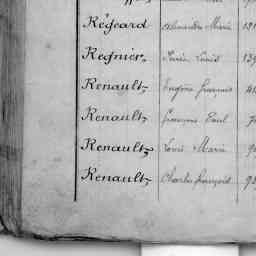 Régeard Alexandre Marie 191
Regnier Marie Louis 139
Renault Eugène François
Renault François Paul
Renault Louis Marie
Renault Charles François